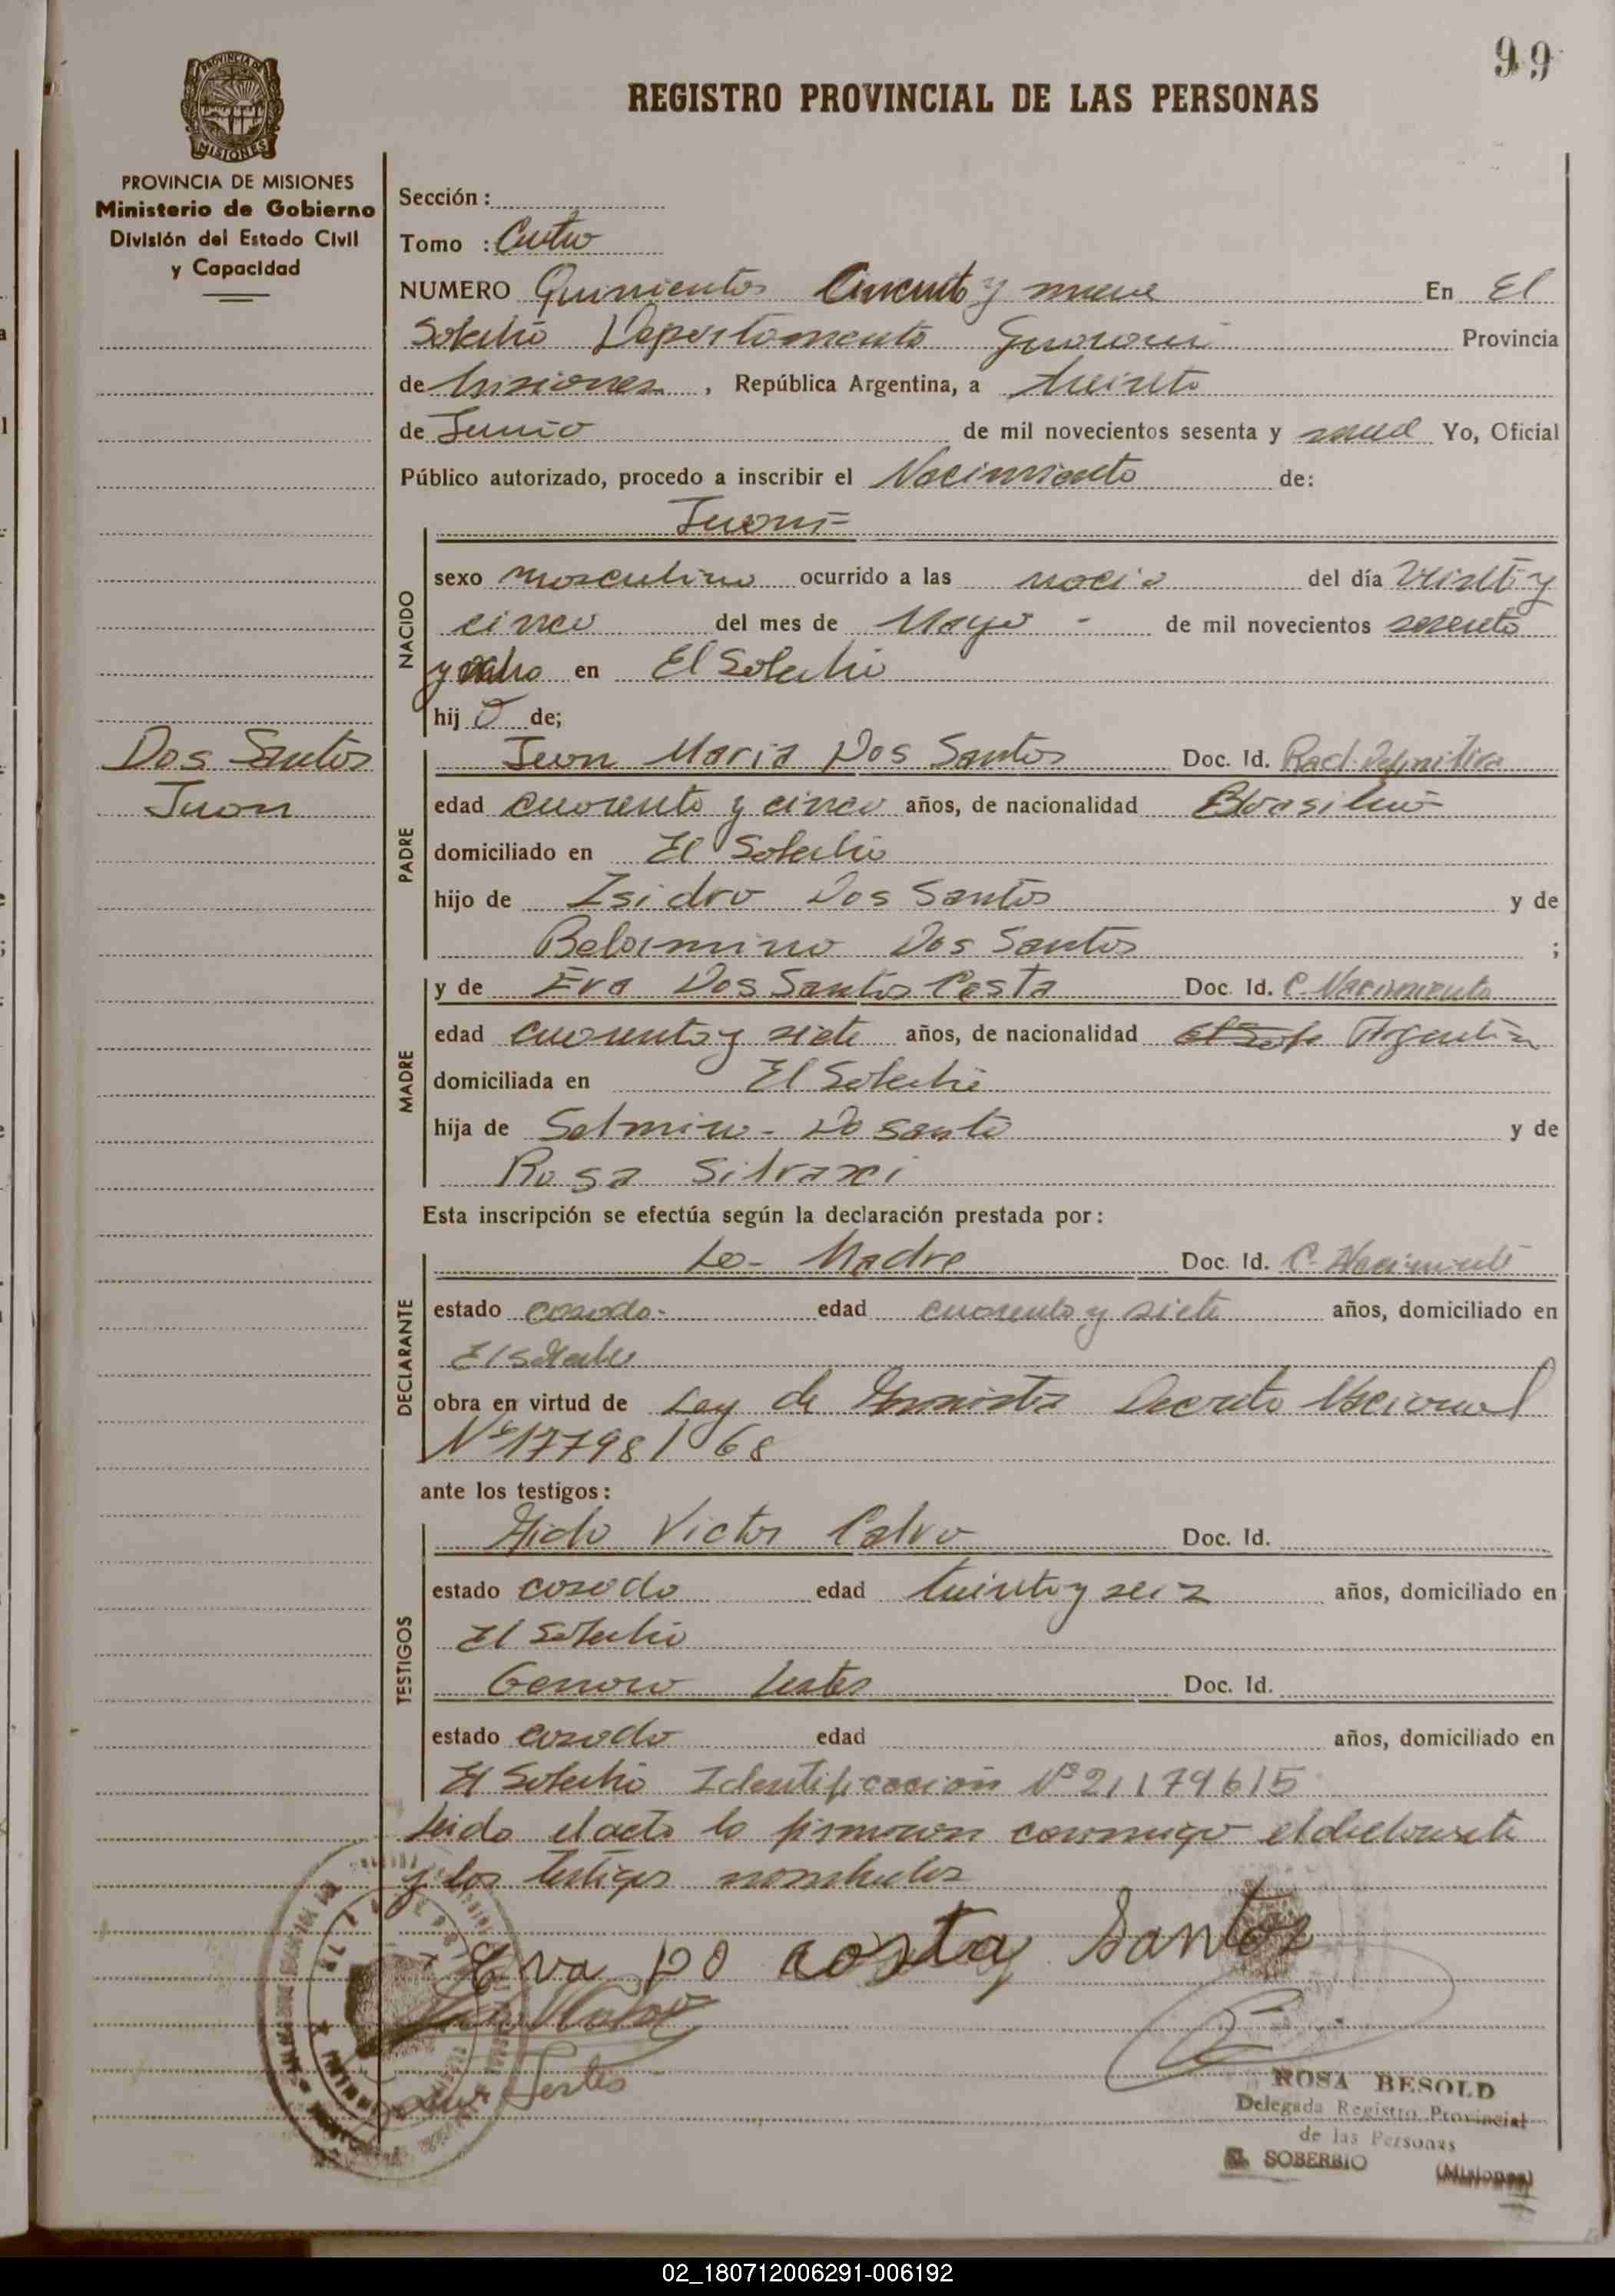 99
REGISTRO PROVINCIAL DE LAS PERSONAS
PROVINCIA DE MISIONES
MISIONES
PROVINCIA DE MISIONES
Ministerio de Gobierno
División del Estado Civil
y Capacidad
Sección:
Tomo :
NUMERO Quinientos Cincuenta y nueve En El
Soberbio Departamento Guarani Provincia
de Misiones, República Argentina, a treinta
de Junio de mil novecientos sesenta y nueve Yo, Oficial
Público autorizado, procedo a inscribir el Nacimiento de:
Juan=
NACIDO
sexo masculino ocurrido a las del día veinte y
cinco del mes de Mayo - de mil novecientos sesenta
y en El Soberbio
hij o de;
Dos Santos
Juan
PADRE
Juan Maria Dos Santos Doc. Id. Rad. Definitiva
edad cuarenta y cinco años, de nacionalidad
domiciliado en El Soberbio
hijo de Isidro Dos Santos y de
Belarmina Dos Santos ;
MADRE
y de Eva Dos Santos Costa Doc. Id. C. Nacimiento
edad cuarenta y siete años, de nacionalidad Argentina
domiciliada en El Soberbio
hija de Do Santo y de
Rosa
Esta inscripción se efectúa según la declaración prestada por:
DECLARANTE
La - Madre Doc. Id. C. Nacimiento
estado casada- edad cuarenta y siete años, domiciliado en
El Soberbio
obra en virtud de Ley de Amnistia Decreto Nacional
Nº 17798/68
ante los testigos:
TESTIGOS
Victor Calvo Doc. Id.
estado casado edad treinta y seis años, domiciliado en
El Soberbio
Genaro Doc. Id.
estado casado edad años, domiciliado en
El Soberbio Identificación Nº 21179615
Leida el acta la firmaron conmigo el declarante
y los testigos nombrados
Eva Do costa Santos
ROSA BESOLD
Delegada Registro Provincial
de las Personas
EL SOBERBIO (Misiones)
02_180712006291-006192